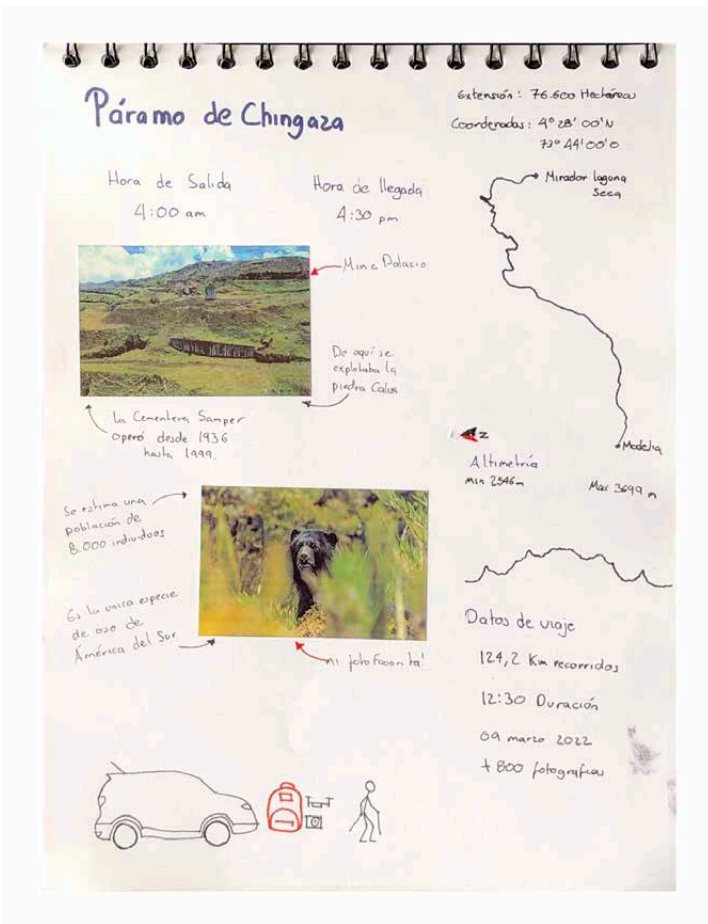 Páramo de Chingaza
Extensión: 76.600 Hectáreas
Coordenadas: 4° 28' 00'N
73° 44' 00'O
Hora de Salida
4:00 am
Hora de llegada
4:30 pm
Mirador laguna
Seca
Mina Palacio
De aquí se
explotaba la
piedra Caliza
La Cementera Samper
operó desde 1936
hasta 1999.
N
Modelia
Altimetría
Min 2546 m
Max 3699 m
Se estima una
población de
8.000 individuos
Es la unica especie
de oso de
América del Sur
mi foto Favorita!
Datos de viaje
124,2 Km recorridos
12:30 Duración
09 marzo 2022
+ 800 fotografías